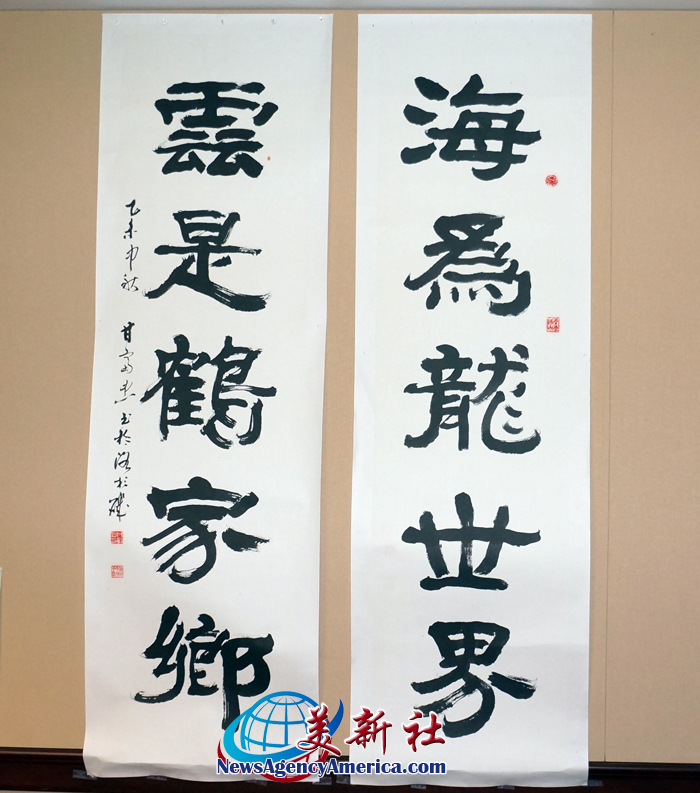 海為龍世界
雲是鶴家鄉
乙未中秋 甘富 书於洛杉磯
美新社
NewsAgencyAmerica.com